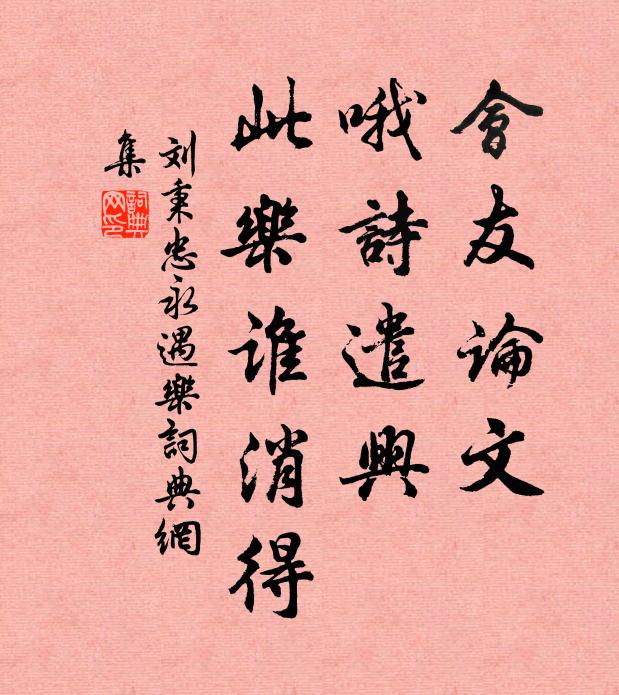 會友論文
哦詩遣興
此樂誰消得
刘秉忠永遇樂詞典網
集
詞典
网印